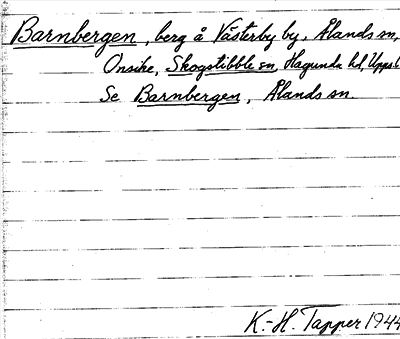 Barnbergen, berg å Västerby by, Ålands sn,
Onsike, Skogstibble sn, Hagunda hd, Uppsl
Se Barnbergen, Ålands sn.
K.-H. Tapper 1944